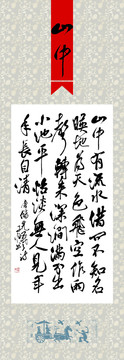 山中
山中有流水借问不知名
映地为天色飞空作雨
声转来深涧满分出
小池平恬淡無人见年
年长自清